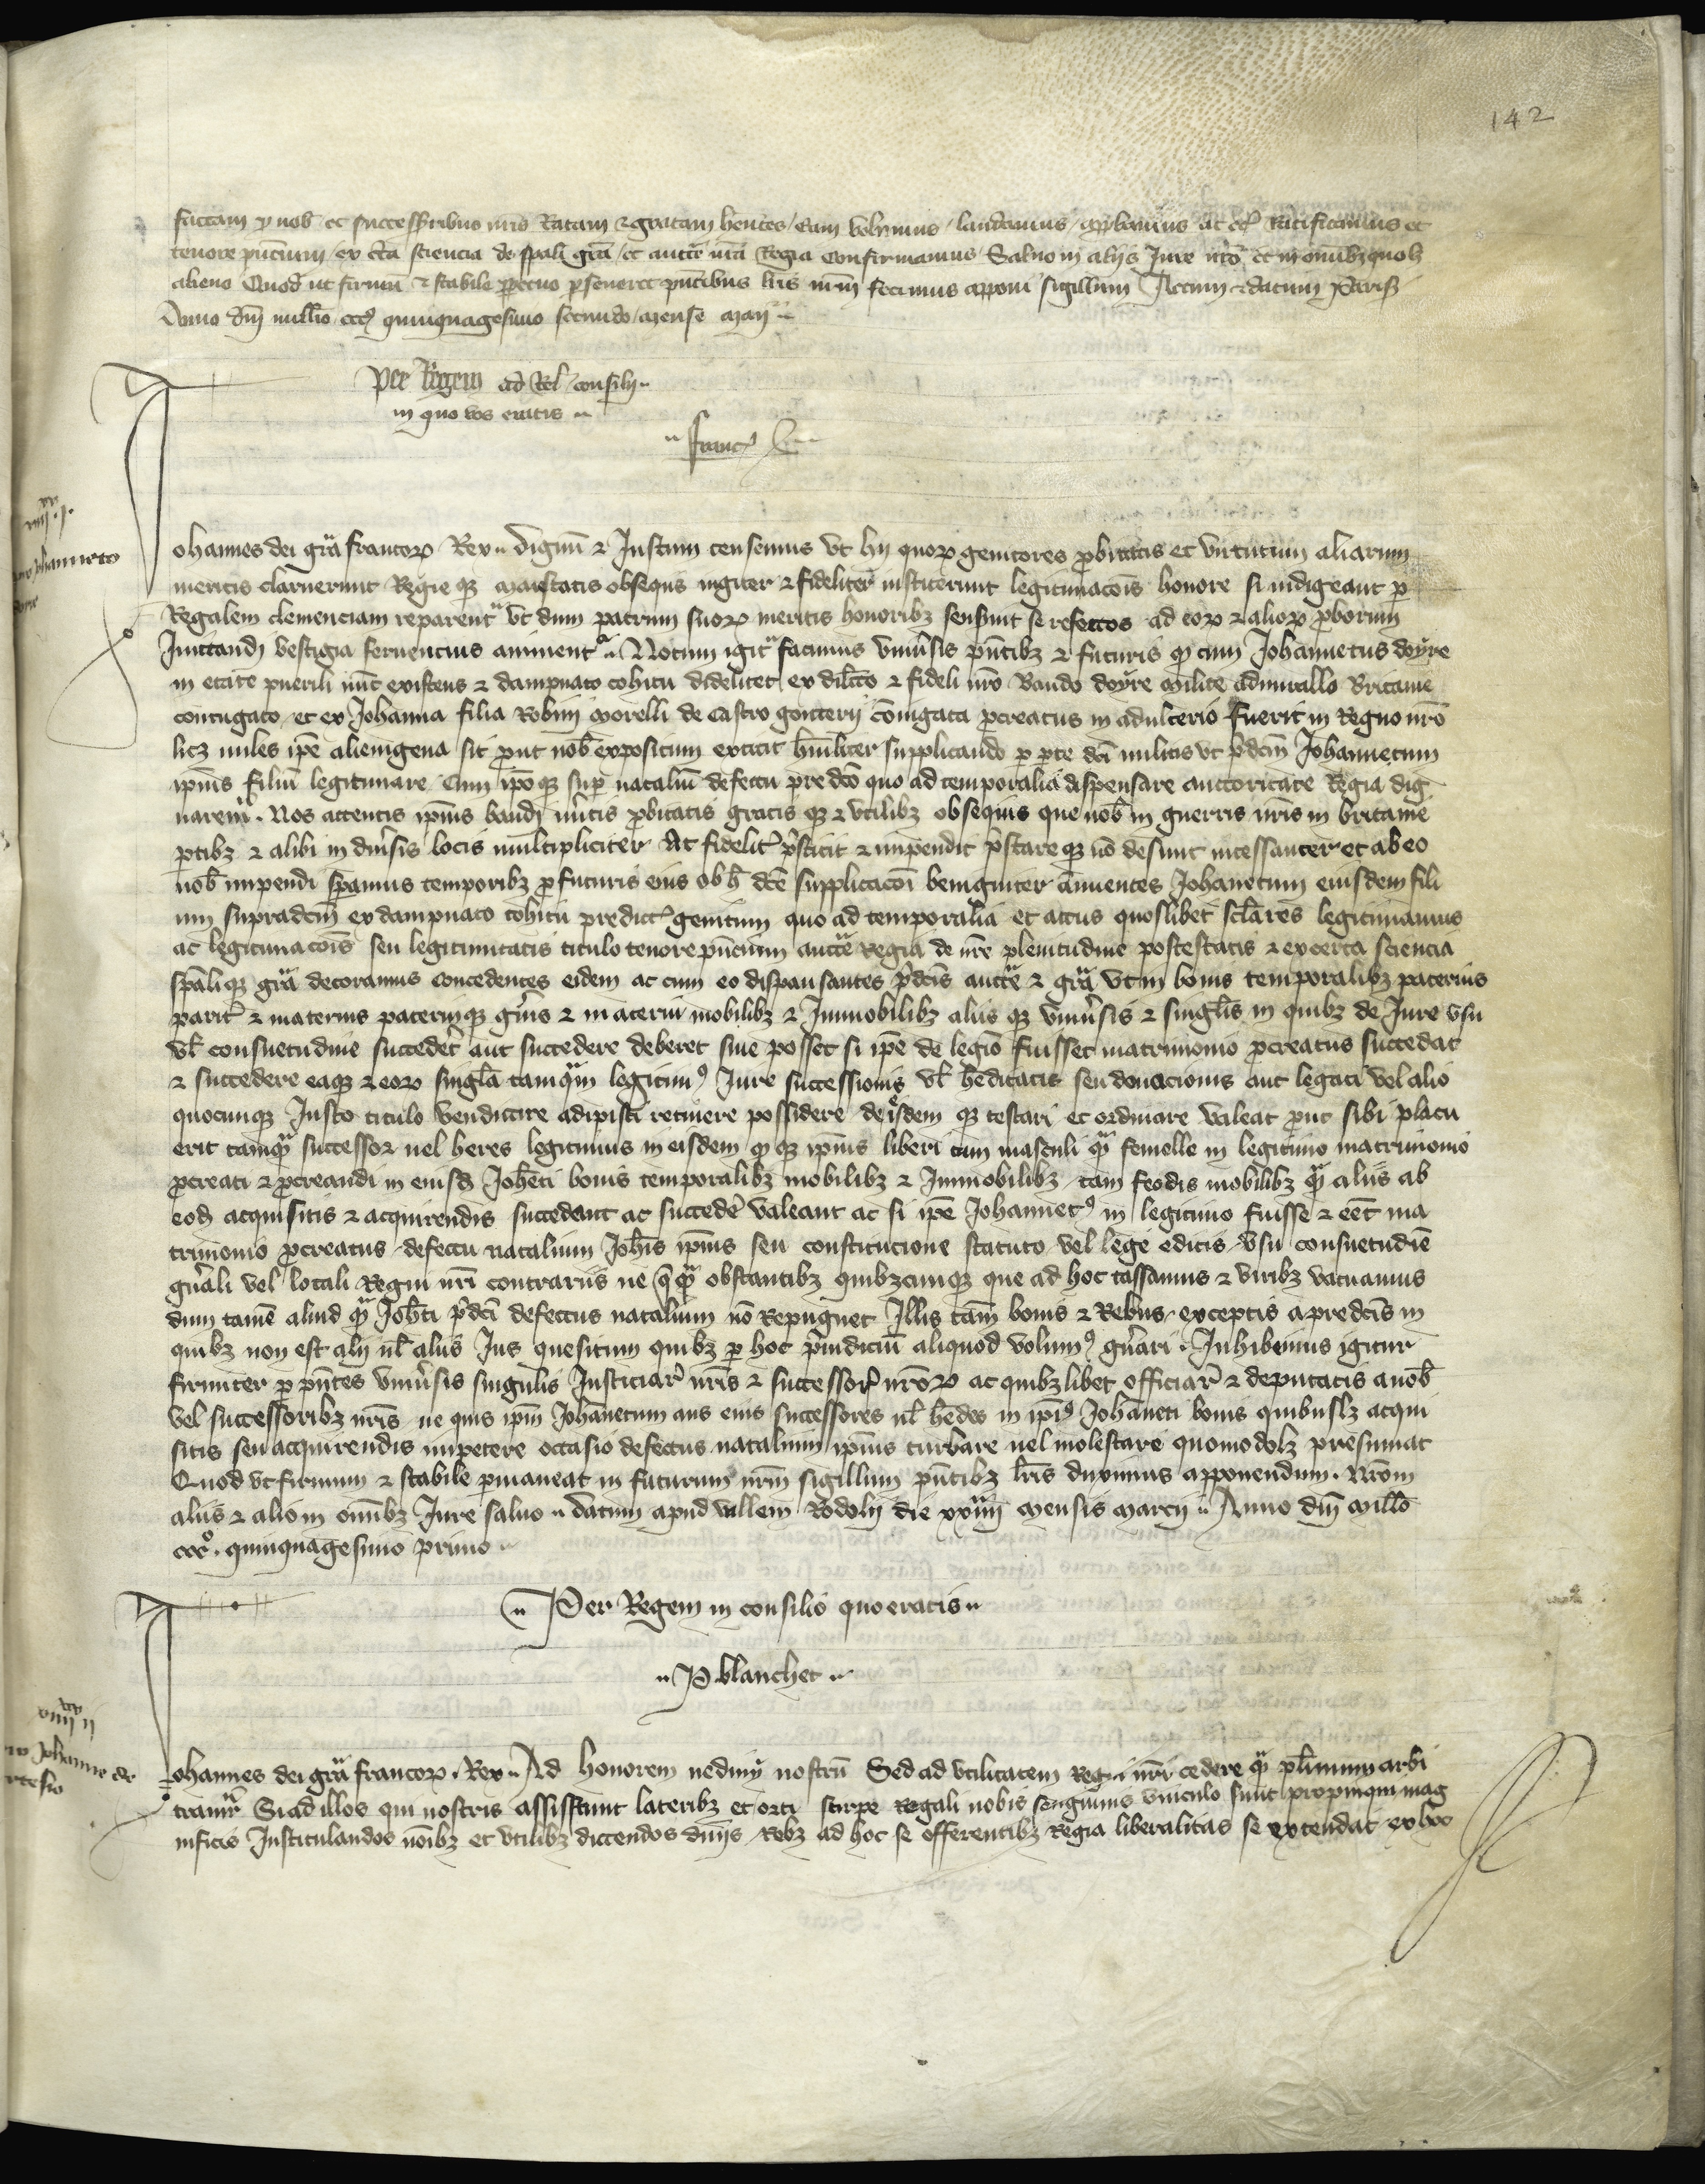 142
factam p nob et successoribus nris Ratam & gratam hentes / eam volumus / laudamus / approbamus ac Ratificamus et
tenore pncium / ex cta sciencia de spali gra / et aucte nra Regia Confirmamus Saluo in aliis Jure nro et in omnibz quolz
alieno Quod ut firmu & stabile ppetuo pseueret pntibus lris nrm fecimus apponi sigillum Actum & datum Parisi
Anno dni millio ccc quinquagesimo secundo / mense maij
Per Regem ad Rel consilij
in quo vos eratis
franc
Johannes dei gra francor Rex Dignu & Justum censemus vt hij quor genitores probitatis et virtutum aliarum
meritis claruerunt Regie qz maiestatis obsequiis iugiter & fideliter institerunt legitimacois honore si indigeant p
Regalem clemenciam reparent vt dum patrum suor meritis honoribz senserint se refectos ad eor & alior proborum
Jmitandi vestigia feruencius animent Notum igit facimus vniusis pntibz & futuris q cum Johannetus doyre
in etate puerili nuc existens & dampnato cohitu videlicet ex dilcto & fideli nro Baudo doyre milite admirallo Britanie
coniugato et ex Johanna filia Robini Morelli de Castro gonterij coniugata pcreatus in adulterio fuerit in Regno nro
licz miles ipe alienigena sit put nob expositum extitit humiliter supplicando p pte dci militis vt pdcm Johannetum
ipius filiu legitimare Cum ipoqz sup nataliu defectu predco quo ad temporalia dispensare auctoritate Regia dig
narem. Nos attentis ipius baudi mitis pbitatis gratis qz & vtilibz obsequiis que nob in guerris nris in britanie
ptibz & alibi in diusis locis multipliciter Ac fidelit pstitit & impendit pstareqz no desinit incessanter et ab eo
nob impendi spamus temporibz pfuturis eius ob h dce supplicacoi benigniter annuentes Johanetum eiusdem fili
um supradcm ex dampnato cohitu predict genitum quo ad temporalia et actus quoslibet sclares legitimamus
ac legitimacois seu legitimitatis titulo tenore pncium aucte Regia de nre plenitudine postestatis & ex certa sciencia
spaliqz gra decoramus concedentes eidem ac cum eo dispansantes pdcis aucte & gra vt in bonis temporalibz paternis
parit & maternis paterniqz gnis & materni mobilibz & Jmmobilibz aliis qz vniusis & singlis in quibz de Jure vsu
vl consuetudine succedet aut succedere deberet siue posset si ipe de legio fuisset matrimonio pcreatus succedat
& succedere eaqz & eor singla tamqm legitim Jure successionis vl heditatis seu donacionis aut legati vel alio
quocunqz Justo titulo vendicare adipisci retinere possidere de isdem qz testari et ordinare valeat put sibi placu
erit tamq successor uel heres legitimus in eisdem q qz ipius liberi tam masculi q femelle in legitimo matrimonio
pcreati & pcreandi in eiusd Joheti bonis temporalibz mobilibz & Jmmobilibz tam feodis mobilibz q aliis ab
eod acquisitis & acquirendis succedant ac succede valeant ac si ipe Johannet in legitimo fuisse & eet ma
trimonio pcreatus defectu natalium Johis ipius seu constitucione statuto vel lege edictis vsu consuetudie
gnali vel locali Regni nri contrariis ne qq obstantibz quibzcunqz que ad hoc cassamus & viribz vacuamus
dum tame aliud q Johti pdci defectus natalium no Repugnet Jllis tam bonis & Rebus exceptis a predcis in
quibz non est alij ul aliis Jus quesitum quibz p hoc priudiciu aliquod volum gnari Jnhibemus igitur
firmiter p pntes vniusis singulis Justiciar nris & successor nror ac quibzlibet officiar & deputatis a nob
vel successoribz nris ne quis ipm Johanetum aus eius successores ul hedes in ipi Johaneti bonis quibuslz acqui
sitis seu acquirendis impetere occasio defectus natalium ipius turbare uel molestare quomodolz presumat
Quod vt firmum & stabile pmaneat in futurum nrm sigillum pntibz lris duximus apponendum. Nrom
aliis & alio in omibz Jure saluo datum apud vallem Rodolij die xxiiij mensis marcij Anno dni millo
ccc quinquagesimo primo
Per Regem in consilio quo eratis
P blanchet
Johannes dei gra francor Rex Ad honorem nedum nostru Sed ad vtilitatem Regni nri cedere q plimum arbi
tramr Si ad illos qui nostris assistunt lateribz et orti stirpe Regali nobis sanguinis vinculo sunt propinqui mag
nificis Justitulandos noibz et vtilibz dictendos diuiis Rebz ad hoc se offerentibz Regia liberalitas se extendat ex hoc